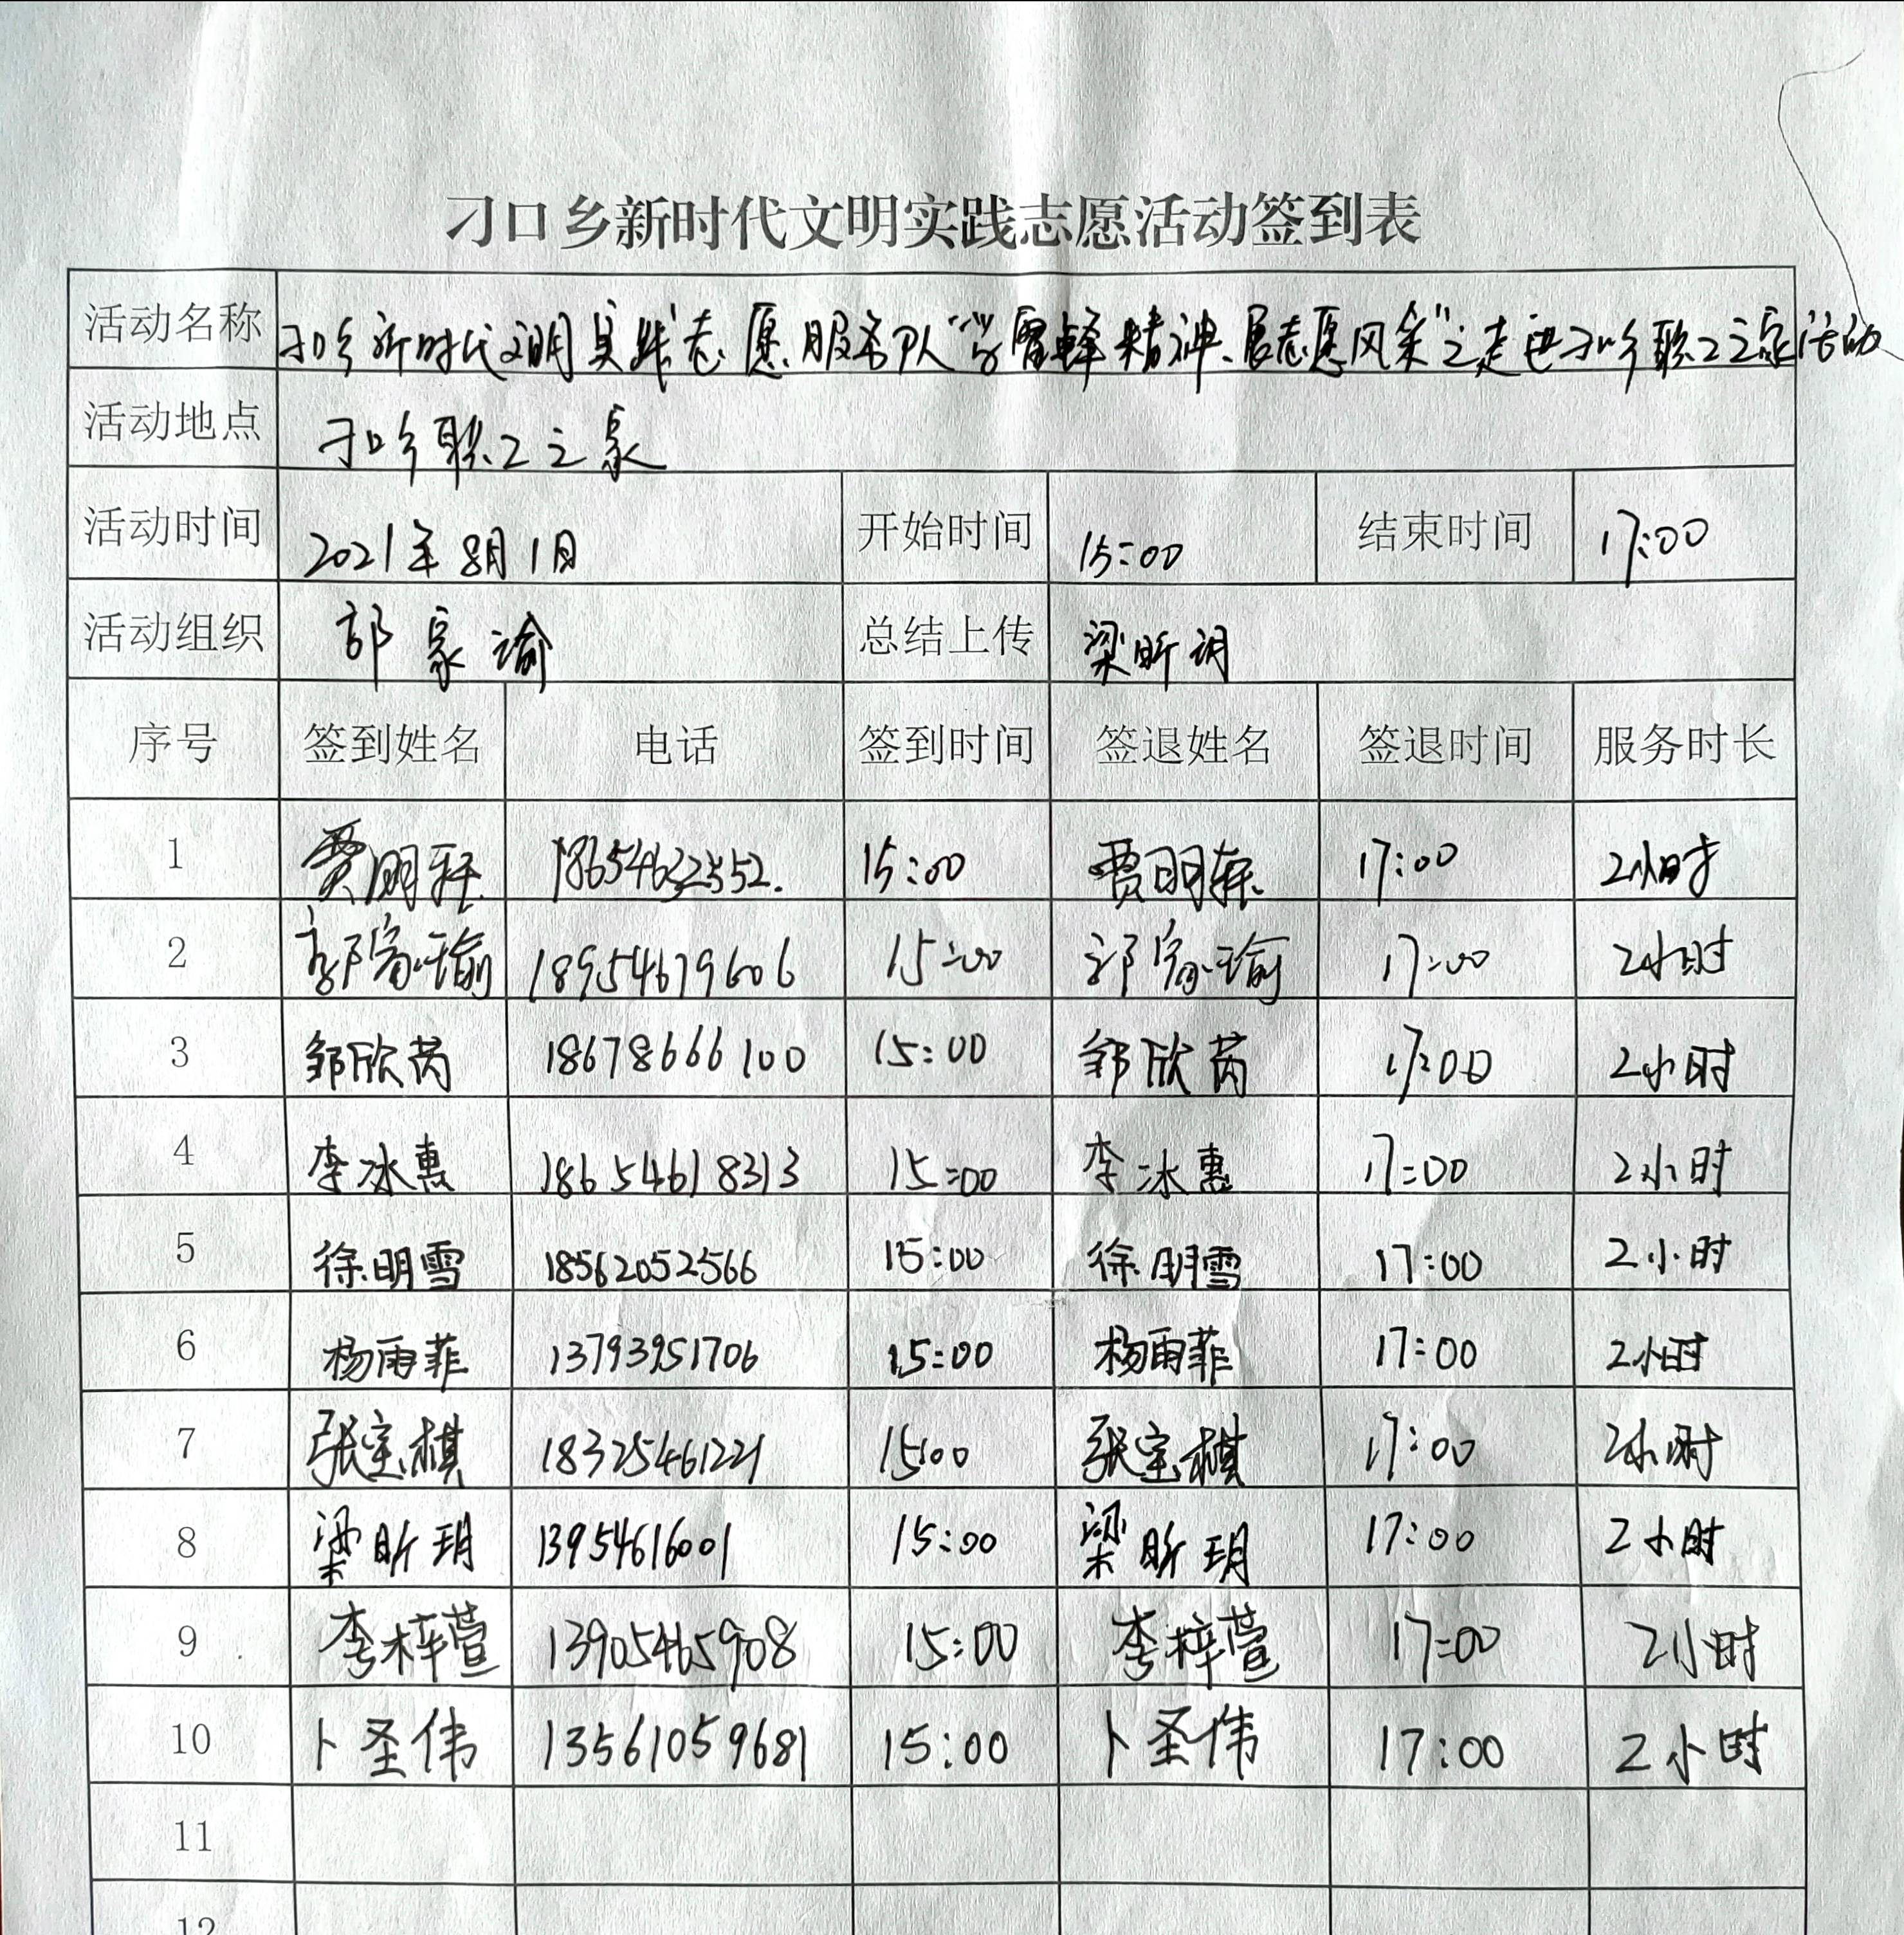 刁口乡新时代文明实践志愿活动签到表
活动名称 刁口乡新时代文明实践志愿服务队“学雷锋精神、展志愿风采”之走进刁口乡职工之家活动
活动地点 刁口乡职工之家
活动时间 2021年8月1日 开始时间 15:00 结束时间 17:00
活动组织 郭家瑜 总结上传 梁昕玥
序号 签到姓名 电话 签到时间 签退姓名 签退时间 服务时长
1 贾明轩 18654622552. 15:00 贾明轩 17:00 2小时
2 郭家瑜 18954679606 15:00 郭家瑜 17:00 2小时
3 邹欣芮 18678666100 15:00 邹欣芮 17:00 2小时
4 李冰惠 18654618313 15:00 李冰惠 17:00 2小时
5 徐明雪 18562052566 15:00 徐明雪 17:00 2小时
6 杨雨菲 13793951706 15:00 杨雨菲 17:00 2小时
7 张宝棋 18325461221 15:00 张宝棋 17:00 2小时
8 梁昕玥 13954616001 15:00 梁昕玥 17:00 2小时
9 李梓萱 13905465908 15:00 李梓萱 17:00 2小时
10 卜圣伟 13561059681 15:00 卜圣伟 17:00 2小时
11
12